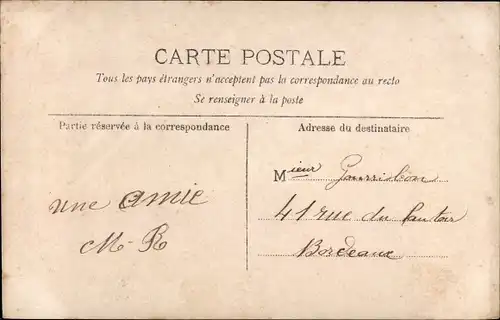 CARTE POSTALE
Tous les pays étrangers n'acceptent pas la correspondance au recto
Se renseigner à la poste
Partie réservée à la correspondance
Adresse du destinataire
une amie
M-R
Mieur
41 rue du
Bordeaux